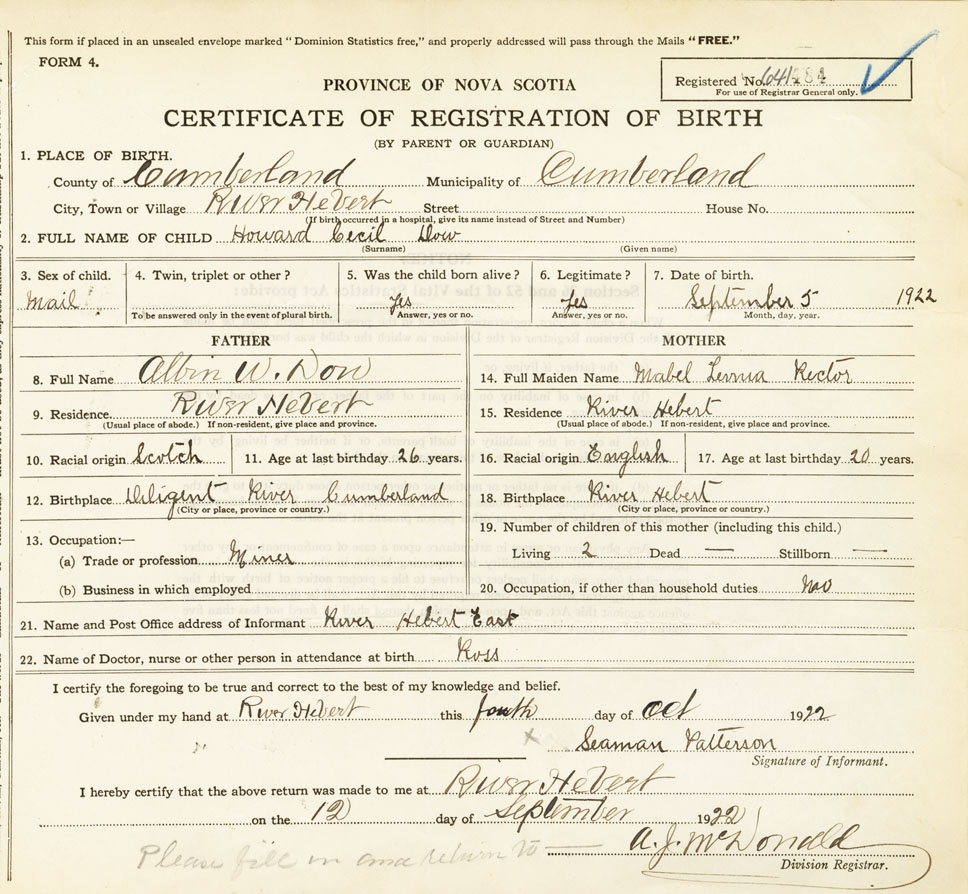 This form if placed in an unsealed envelope marked "Dominion Statistics free," and properly addressed will pass through the Mails "FREE."
FORM 4.
PROVINCE OF NOVA SCOTIA
Registered No.
For use of Registrar General only.
CERTIFICATE OF REGISTRATION OF BIRTH
(BY PARENT OR GUARDIAN)
1. PLACE OF BIRTH.
County of Cumberland Municipality of Cumberland
City, Town or Village River Hebert Street House No.
(If birth occurred in a hospital, give its name instead of Street and Number)
2. FULL NAME OF CHILD Howard Cecil Dow
(Surname) (Given name)
3. Sex of child. 4. Twin, triplet or other? 5. Was the child born alive? 6. Legitimate? 7. Date of birth.
Mail Yes Yes September 5 1922
To be answered only in the event of plural birth. Answer, yes or no. Answer, yes or no. Month, day, year.
FATHER MOTHER
8. Full Name Albin W. Dow 14. Full Maiden Name Mabel Rector
9. Residence. River Hebert 15. Residence River Hebert
(Usual place of abode.) If non-resident, give place and province. (Usual place of abode.) If non-resident, give place and province.
10. Racial origin Scotch 11. Age at last birthday 26 years. 16. Racial origin English 17. Age at last birthday 20 years.
12. Birthplace Diligent River Cumberland 18. Birthplace River Hebert
(City or place, province or country.) (City or place, province or country.)
19. Number of children of this mother (including this child.)
13. Occupation:—
Living 2 Dead — Stillborn —
(a) Trade or profession Miner
(b) Business in which employed 20. Occupation, if other than household duties
21. Name and Post Office address of Informant River Hebert East
22. Name of Doctor, nurse or other person in attendance at birth Ross
I certify the foregoing to be true and correct to the best of my knowledge and belief.
Given under my hand at River Hebert this fouth day of Oct 1922
x Seaman Patterson
Signature of Informant.
I hereby certify that the above return was made to me at River Hebert
on the 12 day of September 1922
A. J. McDonald
Please fill in and return to
Division Registrar.